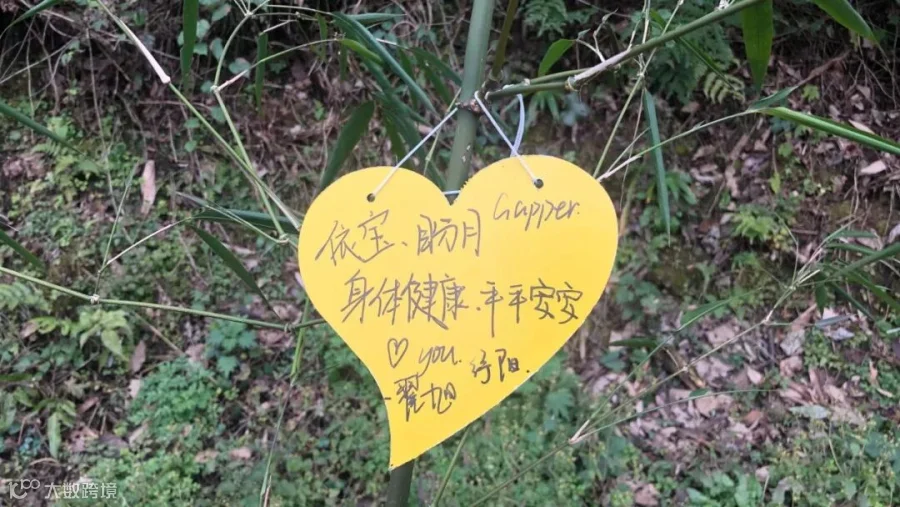 依宝、盼月 Gapper.
身体健康、平平安安
♡ you.
翟旭 纾阳.
大数跨境